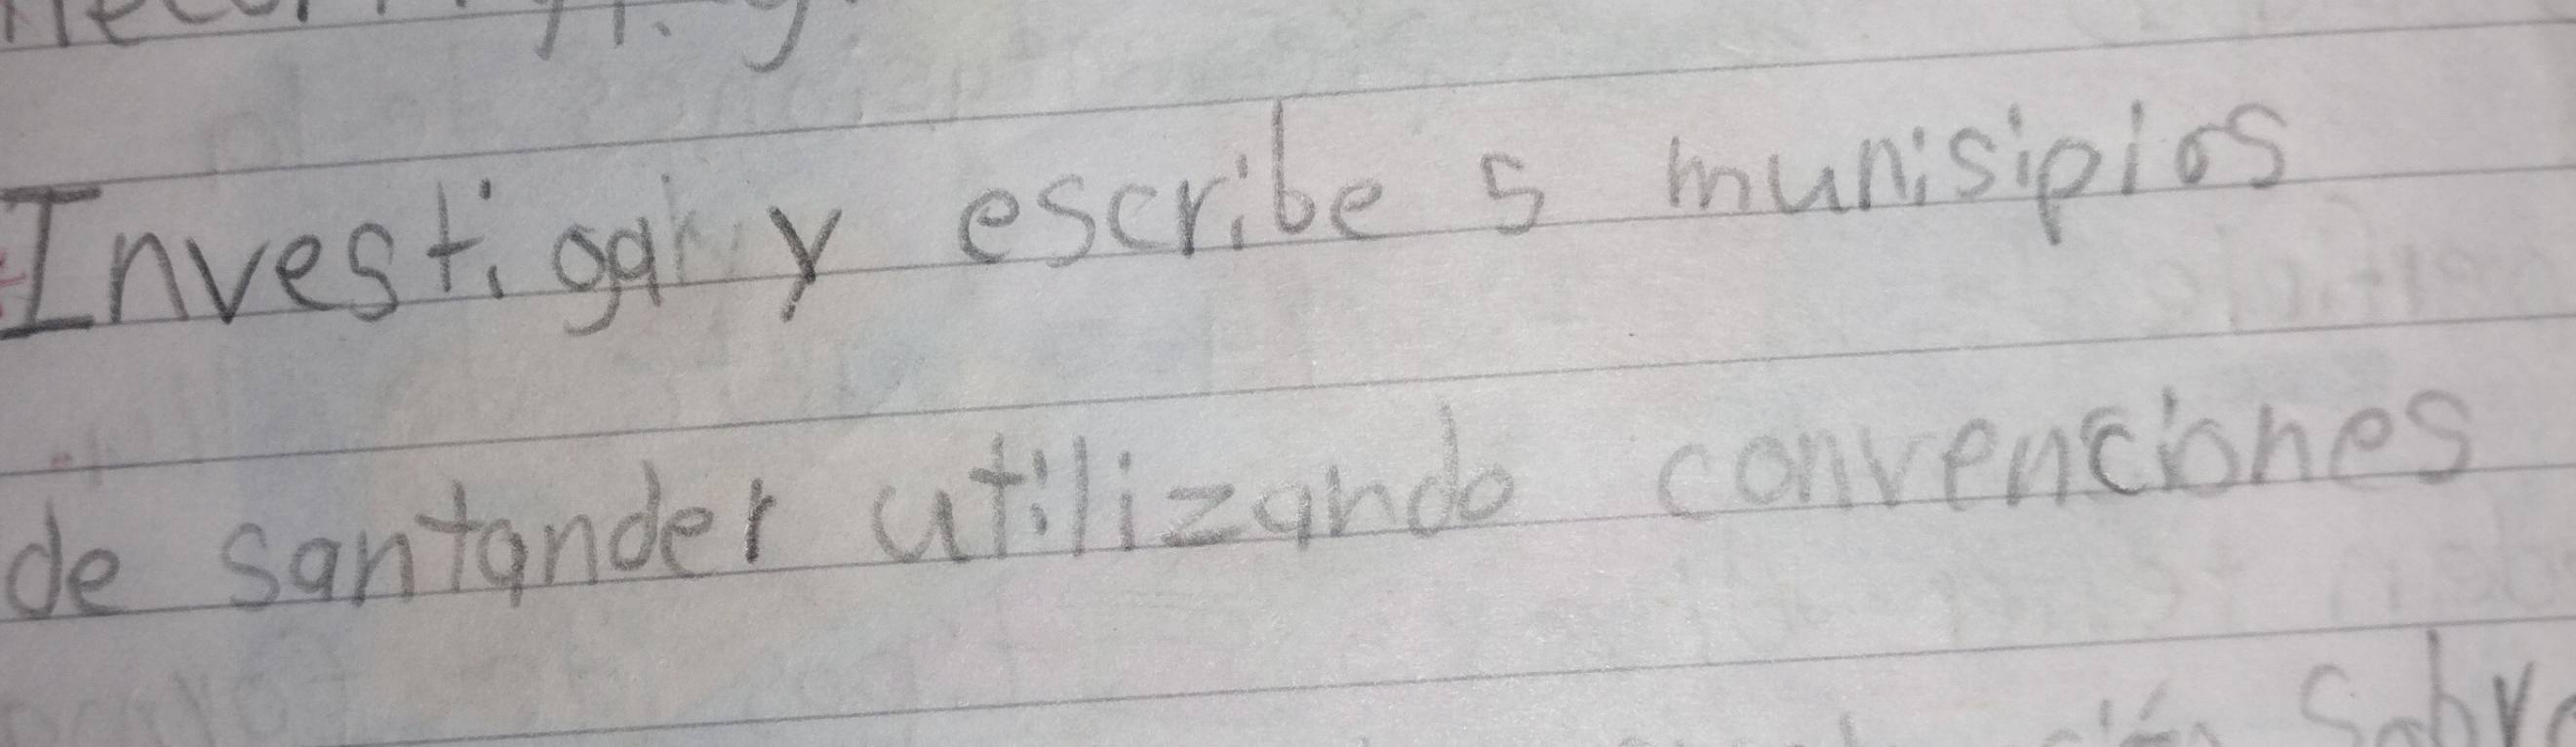 Investiga y escribe 5 munisipios
de santander utilizando convenciones